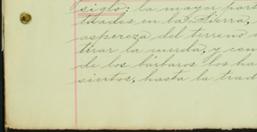 siglo; la mayor par
tidades en la Sierra,
aspereza del terreno
tirar la cuerda, y con
de los bárbaros los ha
sientos, hasta la trad